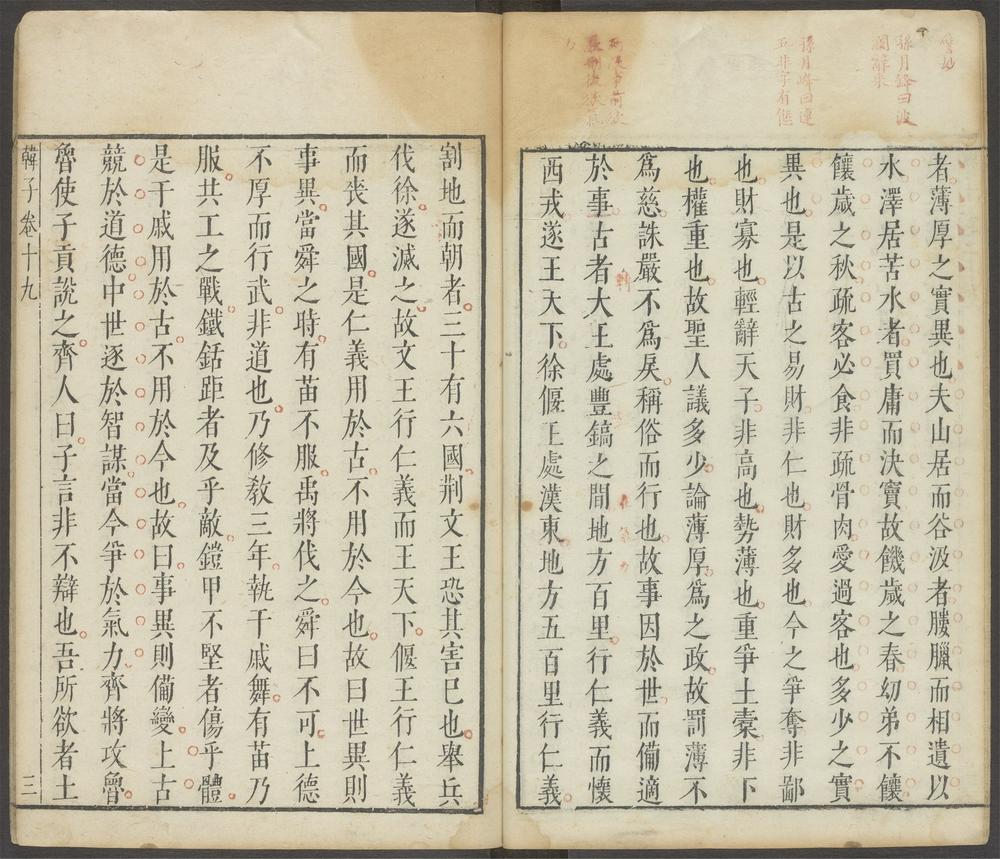 孫月峰曰波
瀾離朱
孫月峰曰連
五非字有態
者薄厚之實異也夫山居而谷汲者膢臘而相遺以
水澤居苦水者買庸而決竇故饑歲之春幼弟不饟
饟歲之秋疏客必食非疏骨肉愛過客也多少之實
異也是以古之易財非仁也財多也今之爭奪非鄙
也財寡也輕辭天子非高也勢薄也重爭土橐非下
也權重也故聖人議多少論薄厚爲之政故罰薄不
爲慈誅嚴不爲戾稱俗而行也故事因於世而備適
於事古者大王處豐鎬之間地方百里行仁義而懷
西戎遂王天下徐偃王處漢東地方五百里行仁義
割地而朝者三十有六國荆文王恐其害已也舉兵
伐徐遂滅之故文王行仁義而王天下偃王行仁義
而喪其國是仁義用於古不用於今也故曰世異則
事異當舜之時有苗不服禹將伐之舜曰不可上德
不厚而行武非道也乃修敎三年執干戚舞有苗乃
服共工之戰鐵銛距者及乎敵鎧甲不堅者傷乎體
是干戚用於古不用於今也故曰事異則備變上古
競於道德中世逐於智謀當今爭於氣力齊將攻魯
魯使子貢說之齊人曰子言非不辯也吾所欲者土
韓子卷十九
三